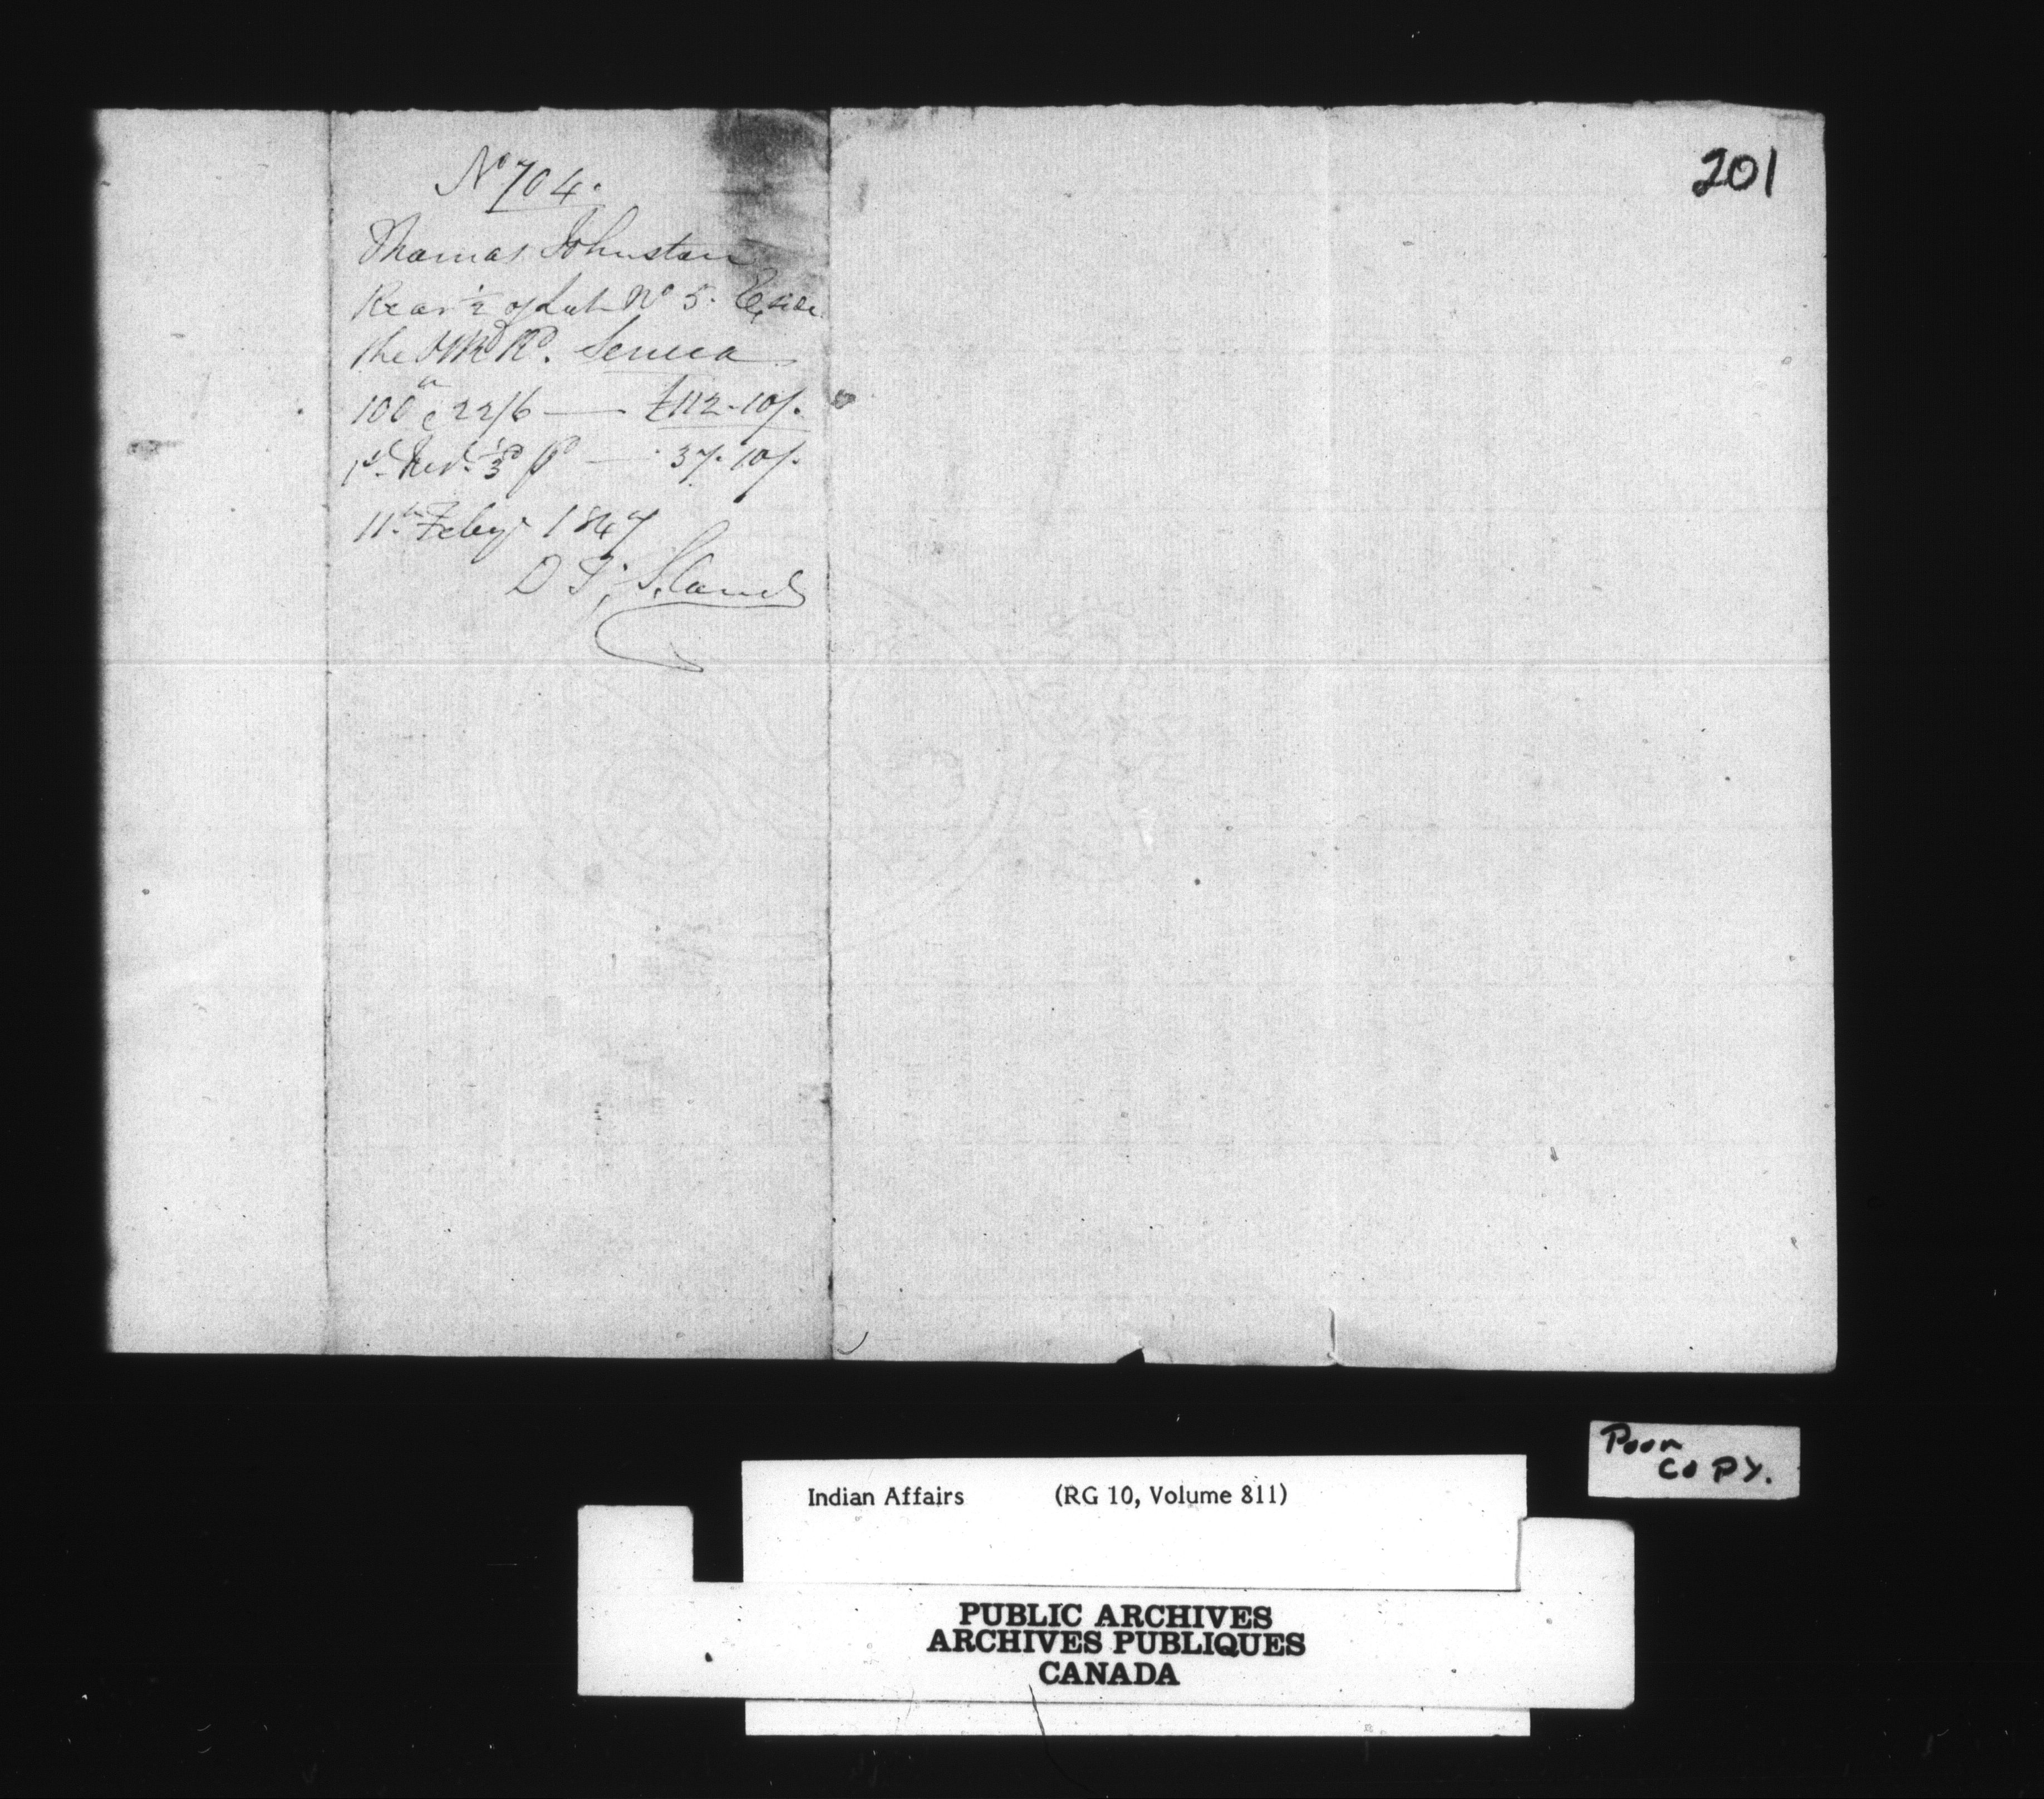 201
No 704.
Thomas Johnston
Rear ½ of Lot No 5. E. side
the Rd. Seneca
100 a @ 22/6 — £112-10/.
1st 3d pd — 37-10/.
11th Feby 1847
D T;
Poor
COPY.
Indian Affairs (RG 10, Volume 811)
PUBLIC ARCHIVES
ARCHIVES PUBLIQUES
CANADA